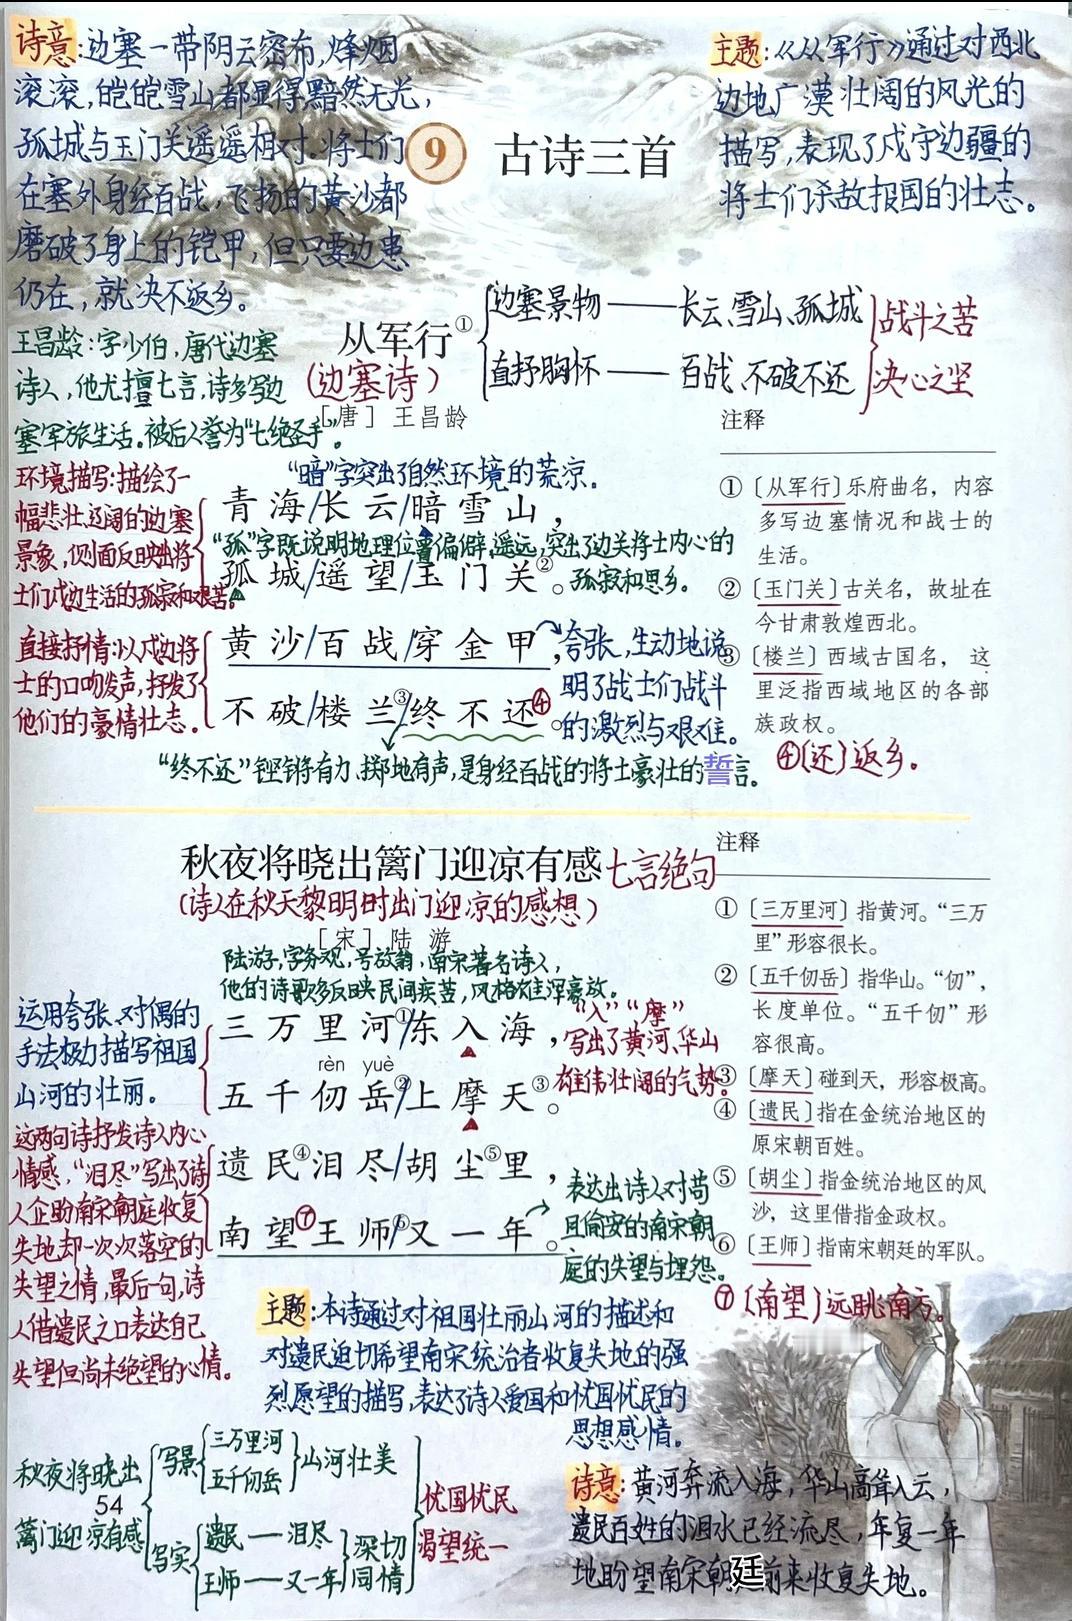 诗意:边塞一带阴云密布,烽烟
滚滚,皑皑雪山都显得黯然无光,
孤城与玉门关遥遥相对.将士们
在塞外身经百战,飞扬的黄沙都
磨破了身上的铠甲,但只要边患
仍在,就决不返乡。
主题:《从军行》通过对西北
边地广漠壮阔的风光的
描写,表现了戍守边疆的
将士们杀敌报国的壮志。
9 古诗三首
王昌龄:字少伯,唐代边塞
诗人,他尤擅七言,诗多写边
塞军旅生活。被后人誉为“七绝圣手”。
从军行①
(边塞诗)
[唐] 王昌龄
边塞景物——长云、雪山、孤城
直抒胸怀——百战、不破不还
战斗之苦
决心之坚
环境描写:描绘了一
幅悲壮、辽阔的边塞
景象,侧面反映出将
士们戍边生活的孤寂和艰苦。
“暗”字突出了自然环境的荒凉.
青海/长云/暗雪山,
“孤”字既说明地理位置偏僻、遥远,突出了边关将士内心的
孤寂和思乡。
孤城/遥望/玉门关②。
直接抒情:以戍边将
士的口吻发声,抒发了
他们的豪情壮志。
黄沙/百战/穿金甲,
不破/楼兰③/终不还④。
夸张,生动地说
明了战士们战斗
的激烈与艰难。
“终不还”铿锵有力、掷地有声,是身经百战的将士豪壮的誓言。
注释
①〔从军行〕乐府曲名,内容
多写边塞情况和战士的
生活。
②〔玉门关〕古关名,故址在
今甘肃敦煌西北。
③〔楼兰〕西域古国名,这
里泛指西域地区的各部
族政权。
④(还)返乡。
秋夜将晓出篱门迎凉有感
七言绝句
(诗人在秋天黎明时出门迎凉的感想)
[宋] 陆 游
陆游,字务观,号放翁,南宋著名诗人,
他的诗歌多反映民间疾苦,风格雄浑豪放。
运用夸张、对偶的
手法极力描写祖国
山河的壮丽。
三万里河①/东入海,
rèn yuè
五千仞岳②/上摩天③。
“入”“摩”
写出了黄河、华山
雄伟壮阔的气势。
这两句诗抒发诗人内心
情感,“泪尽”写出了诗
人企盼南宋朝庭收复
失地却一次次落空的
失望之情,最后一句,诗
人借遗民之口表达自己
失望但尚未绝望的心情。
遗民④泪尽/胡尘⑤里,
南望⑦王师⑥/又一年。
表达出诗人对苟
且偷安的南宋朝
庭的失望与埋怨。
注释
①〔三万里河〕指黄河。“三万
里”形容很长。
②〔五千仞岳〕指华山。“仞”,
长度单位。“五千仞”形
容很高。
③〔摩天〕碰到天,形容极高。
④〔遗民〕指在金统治地区的
原宋朝百姓。
⑤〔胡尘〕指金统治地区的风
沙,这里借指金政权。
⑥〔王师〕指南宋朝廷的军队。
⑦(南望)远眺南方。
主题:本诗通过对祖国壮丽山河的描述和
对遗民迫切希望南宋统治者收复失地的强
烈愿望的描写,表达了诗人爱国和忧国忧民的
思想感情。
秋夜将晓出
篱门迎凉有感
写景
三万里河
五千仞岳
山河壮美
写实
遗民——泪尽
王师——又一年
深切
同情
忧国忧民
渴望统一
54
诗意:黄河奔流入海,华山高耸入云,
遗民百姓的泪水已经流尽,年复一年
地盼望南宋朝廷前来收复失地。